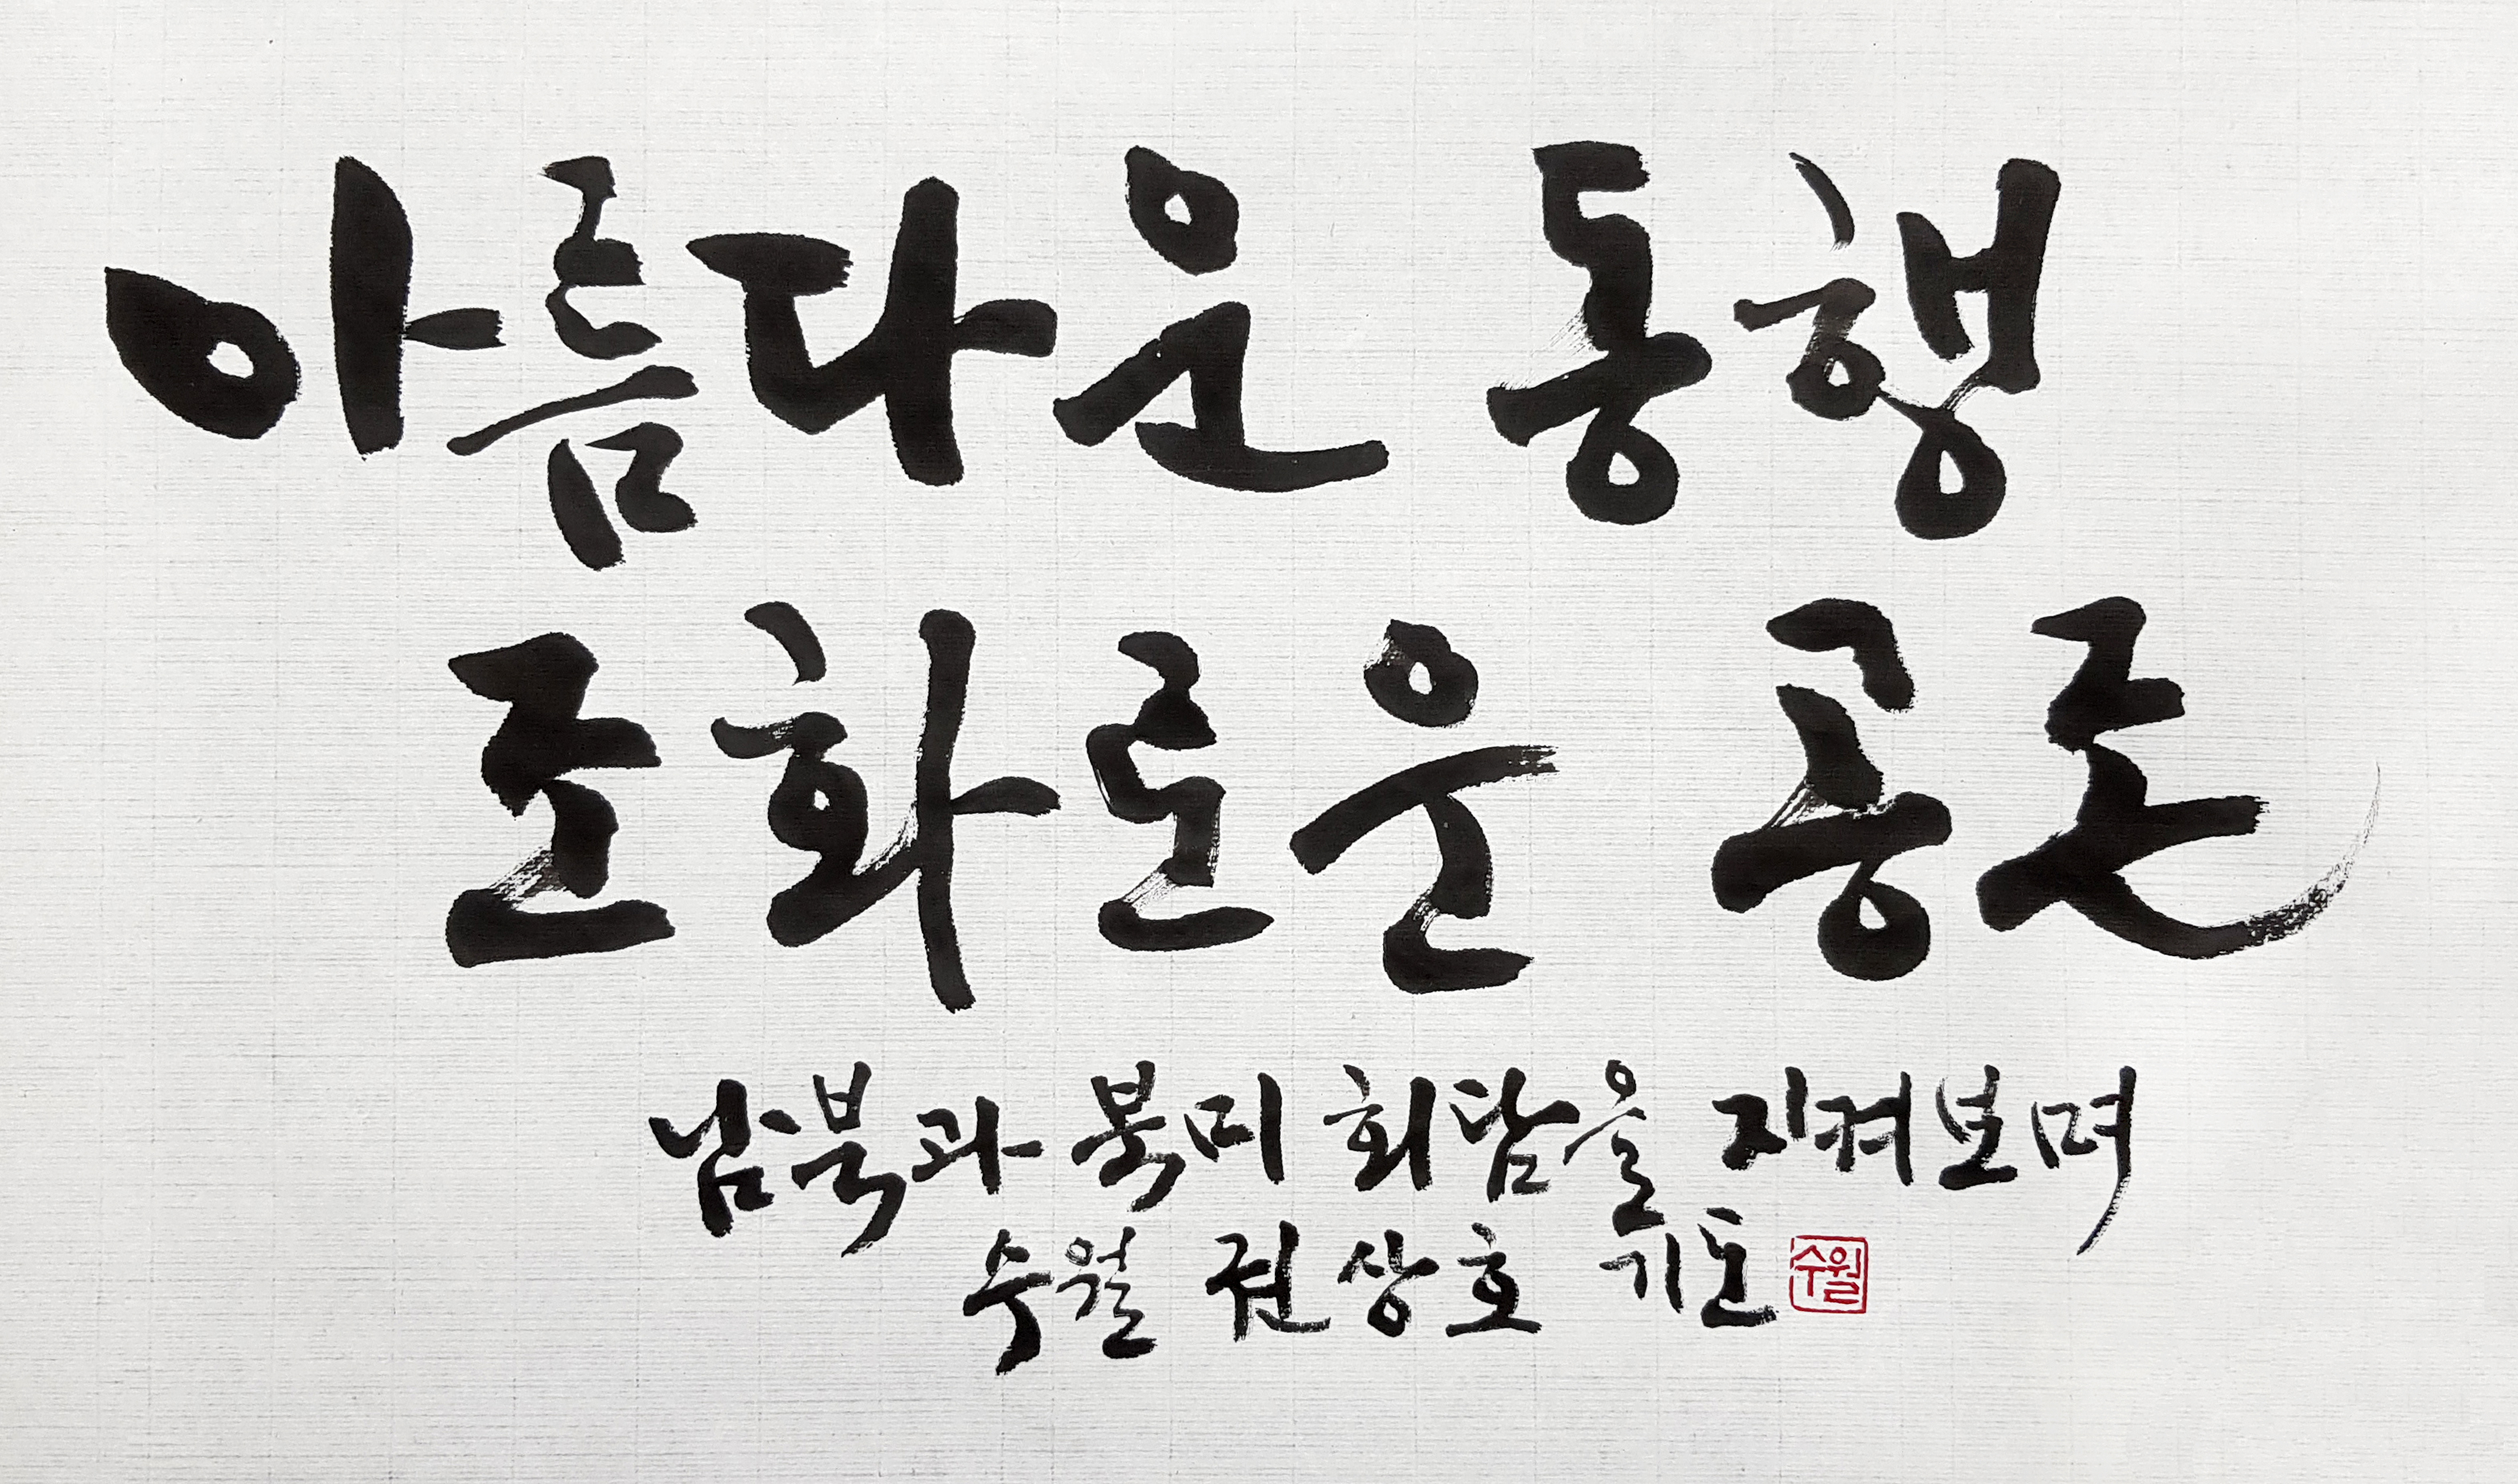 아름다운 동행
조화로운 공존
남북과 북미 회담을 지켜보며
수월 권상호 기도 수월